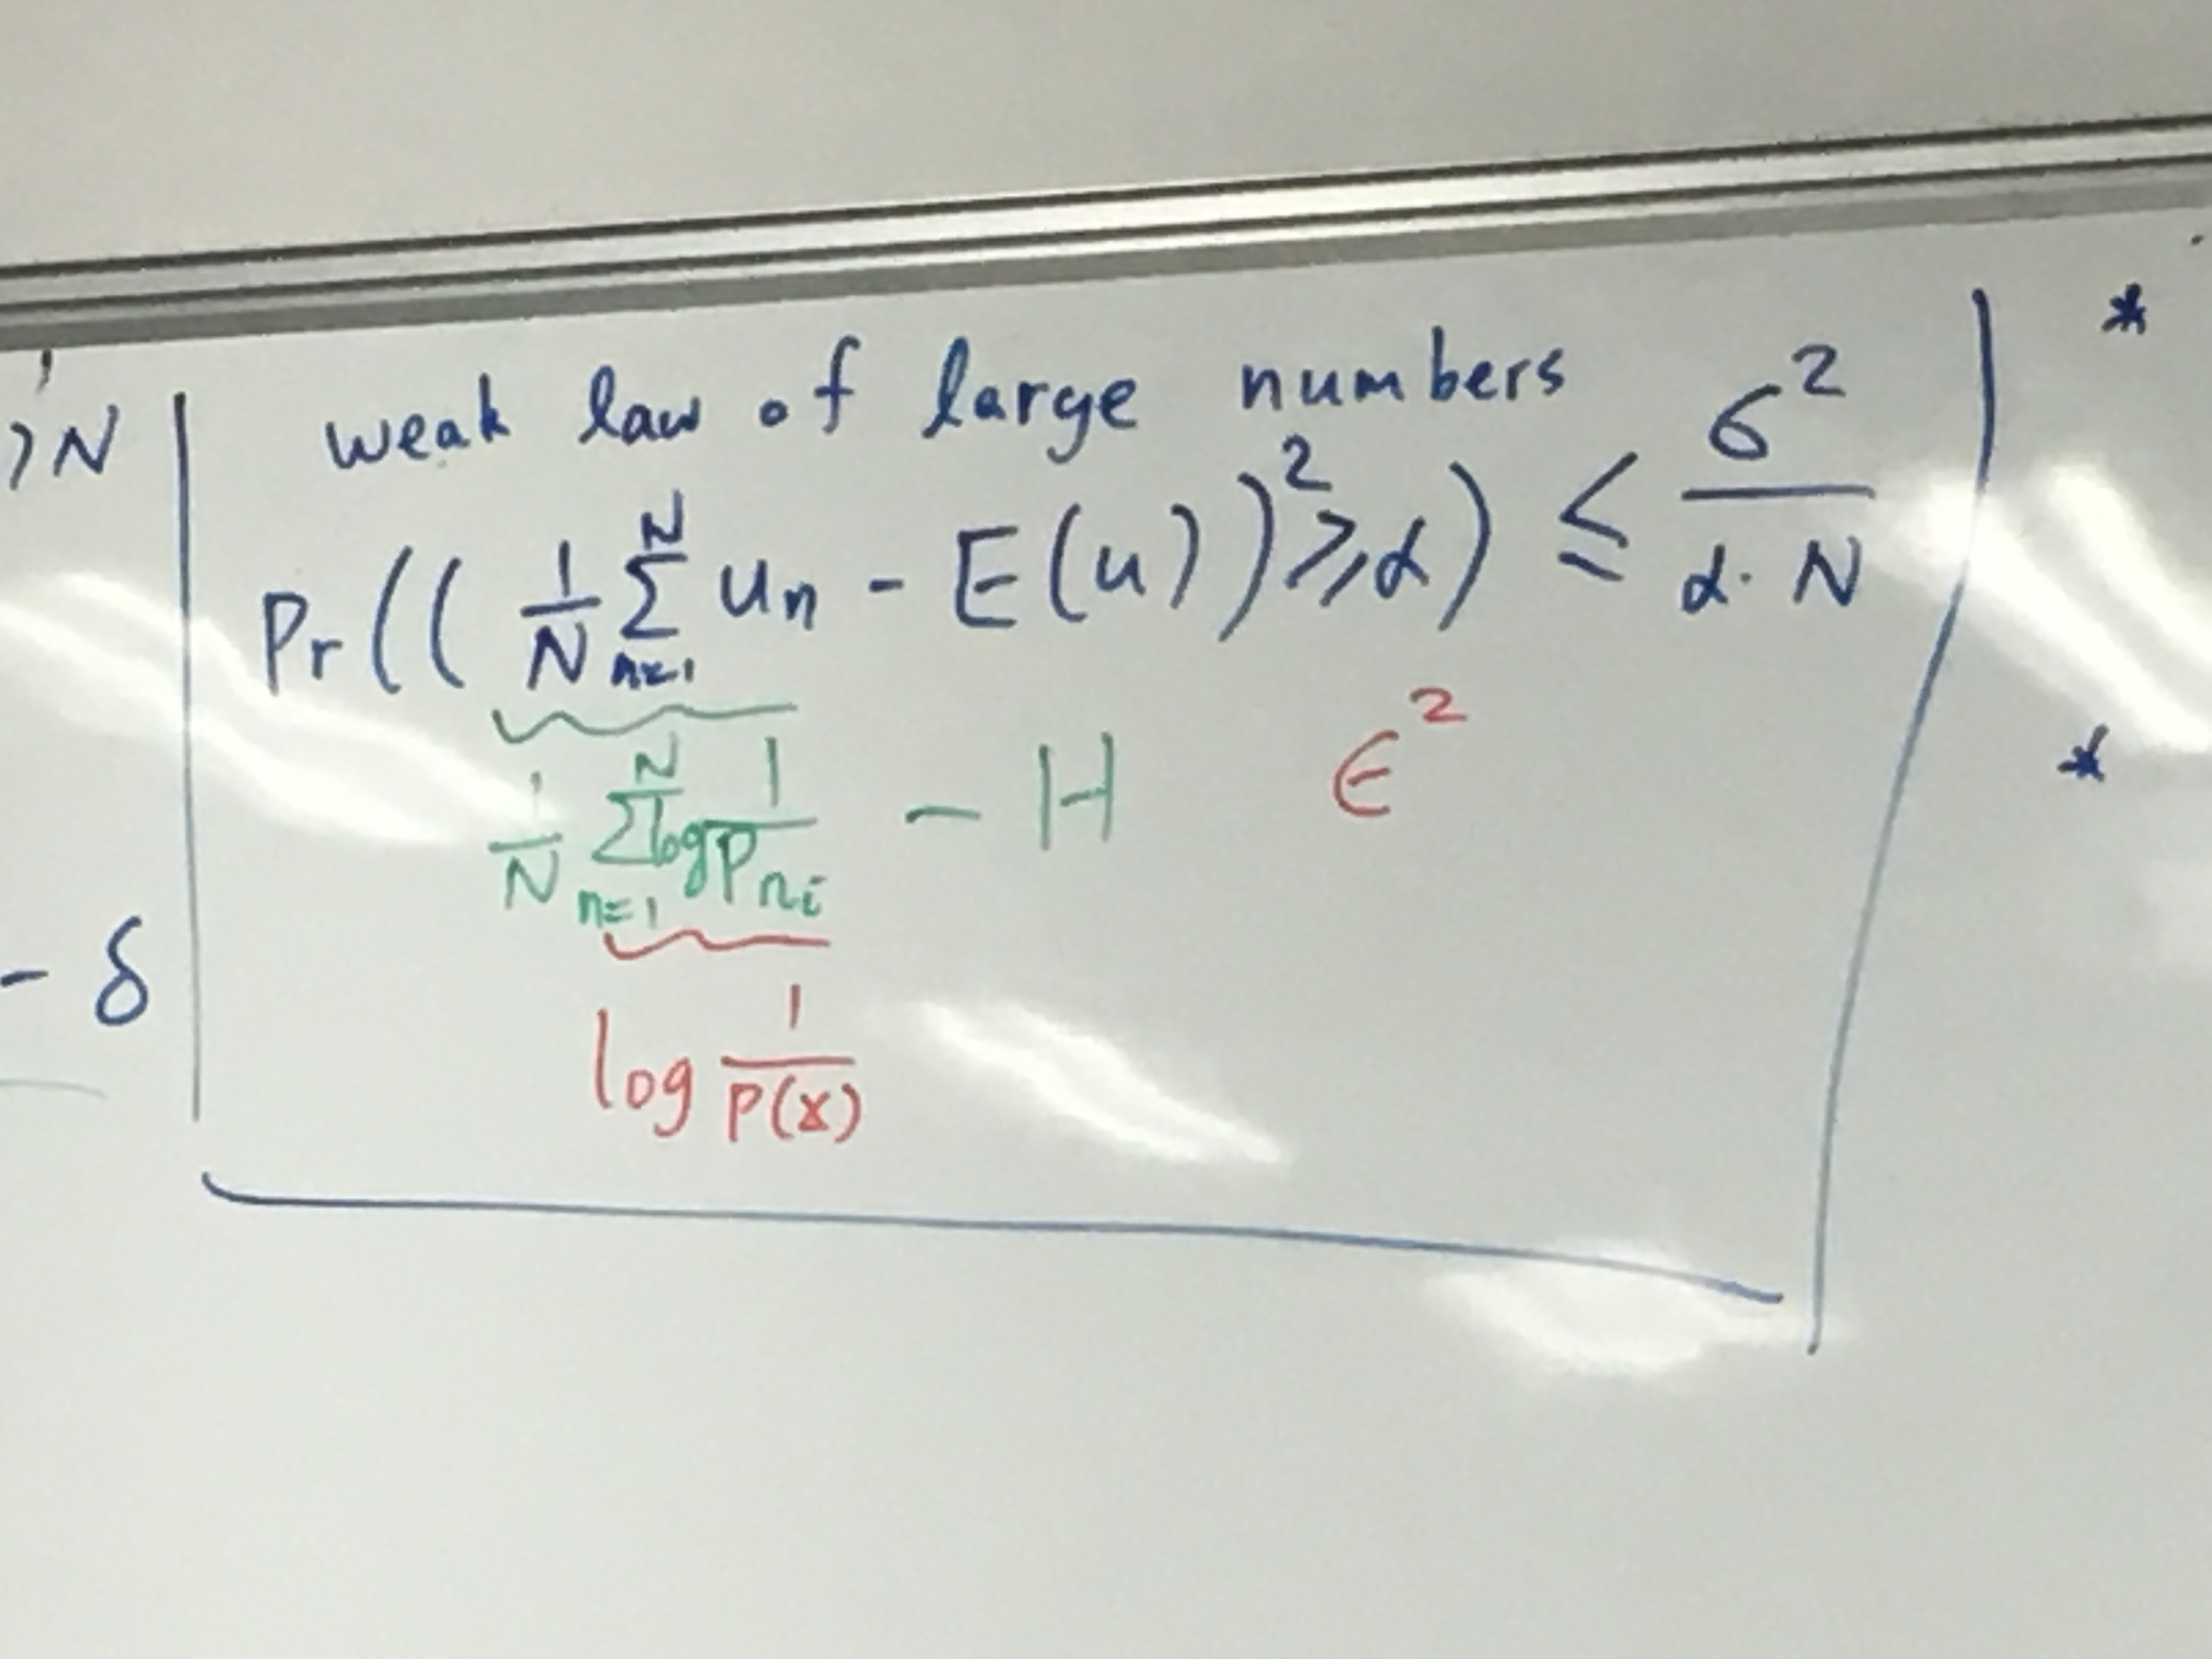 weak law of large numbers
Pr(( 1/N Σ_{n=1}^{N} u_n - E(u))² ≥ α) ≤ σ²/(α · N)
1/N Σ_{n=1}^{N} log 1/P_{n_i} - H ε²
log 1/P(x)
, N
- δ
*
*